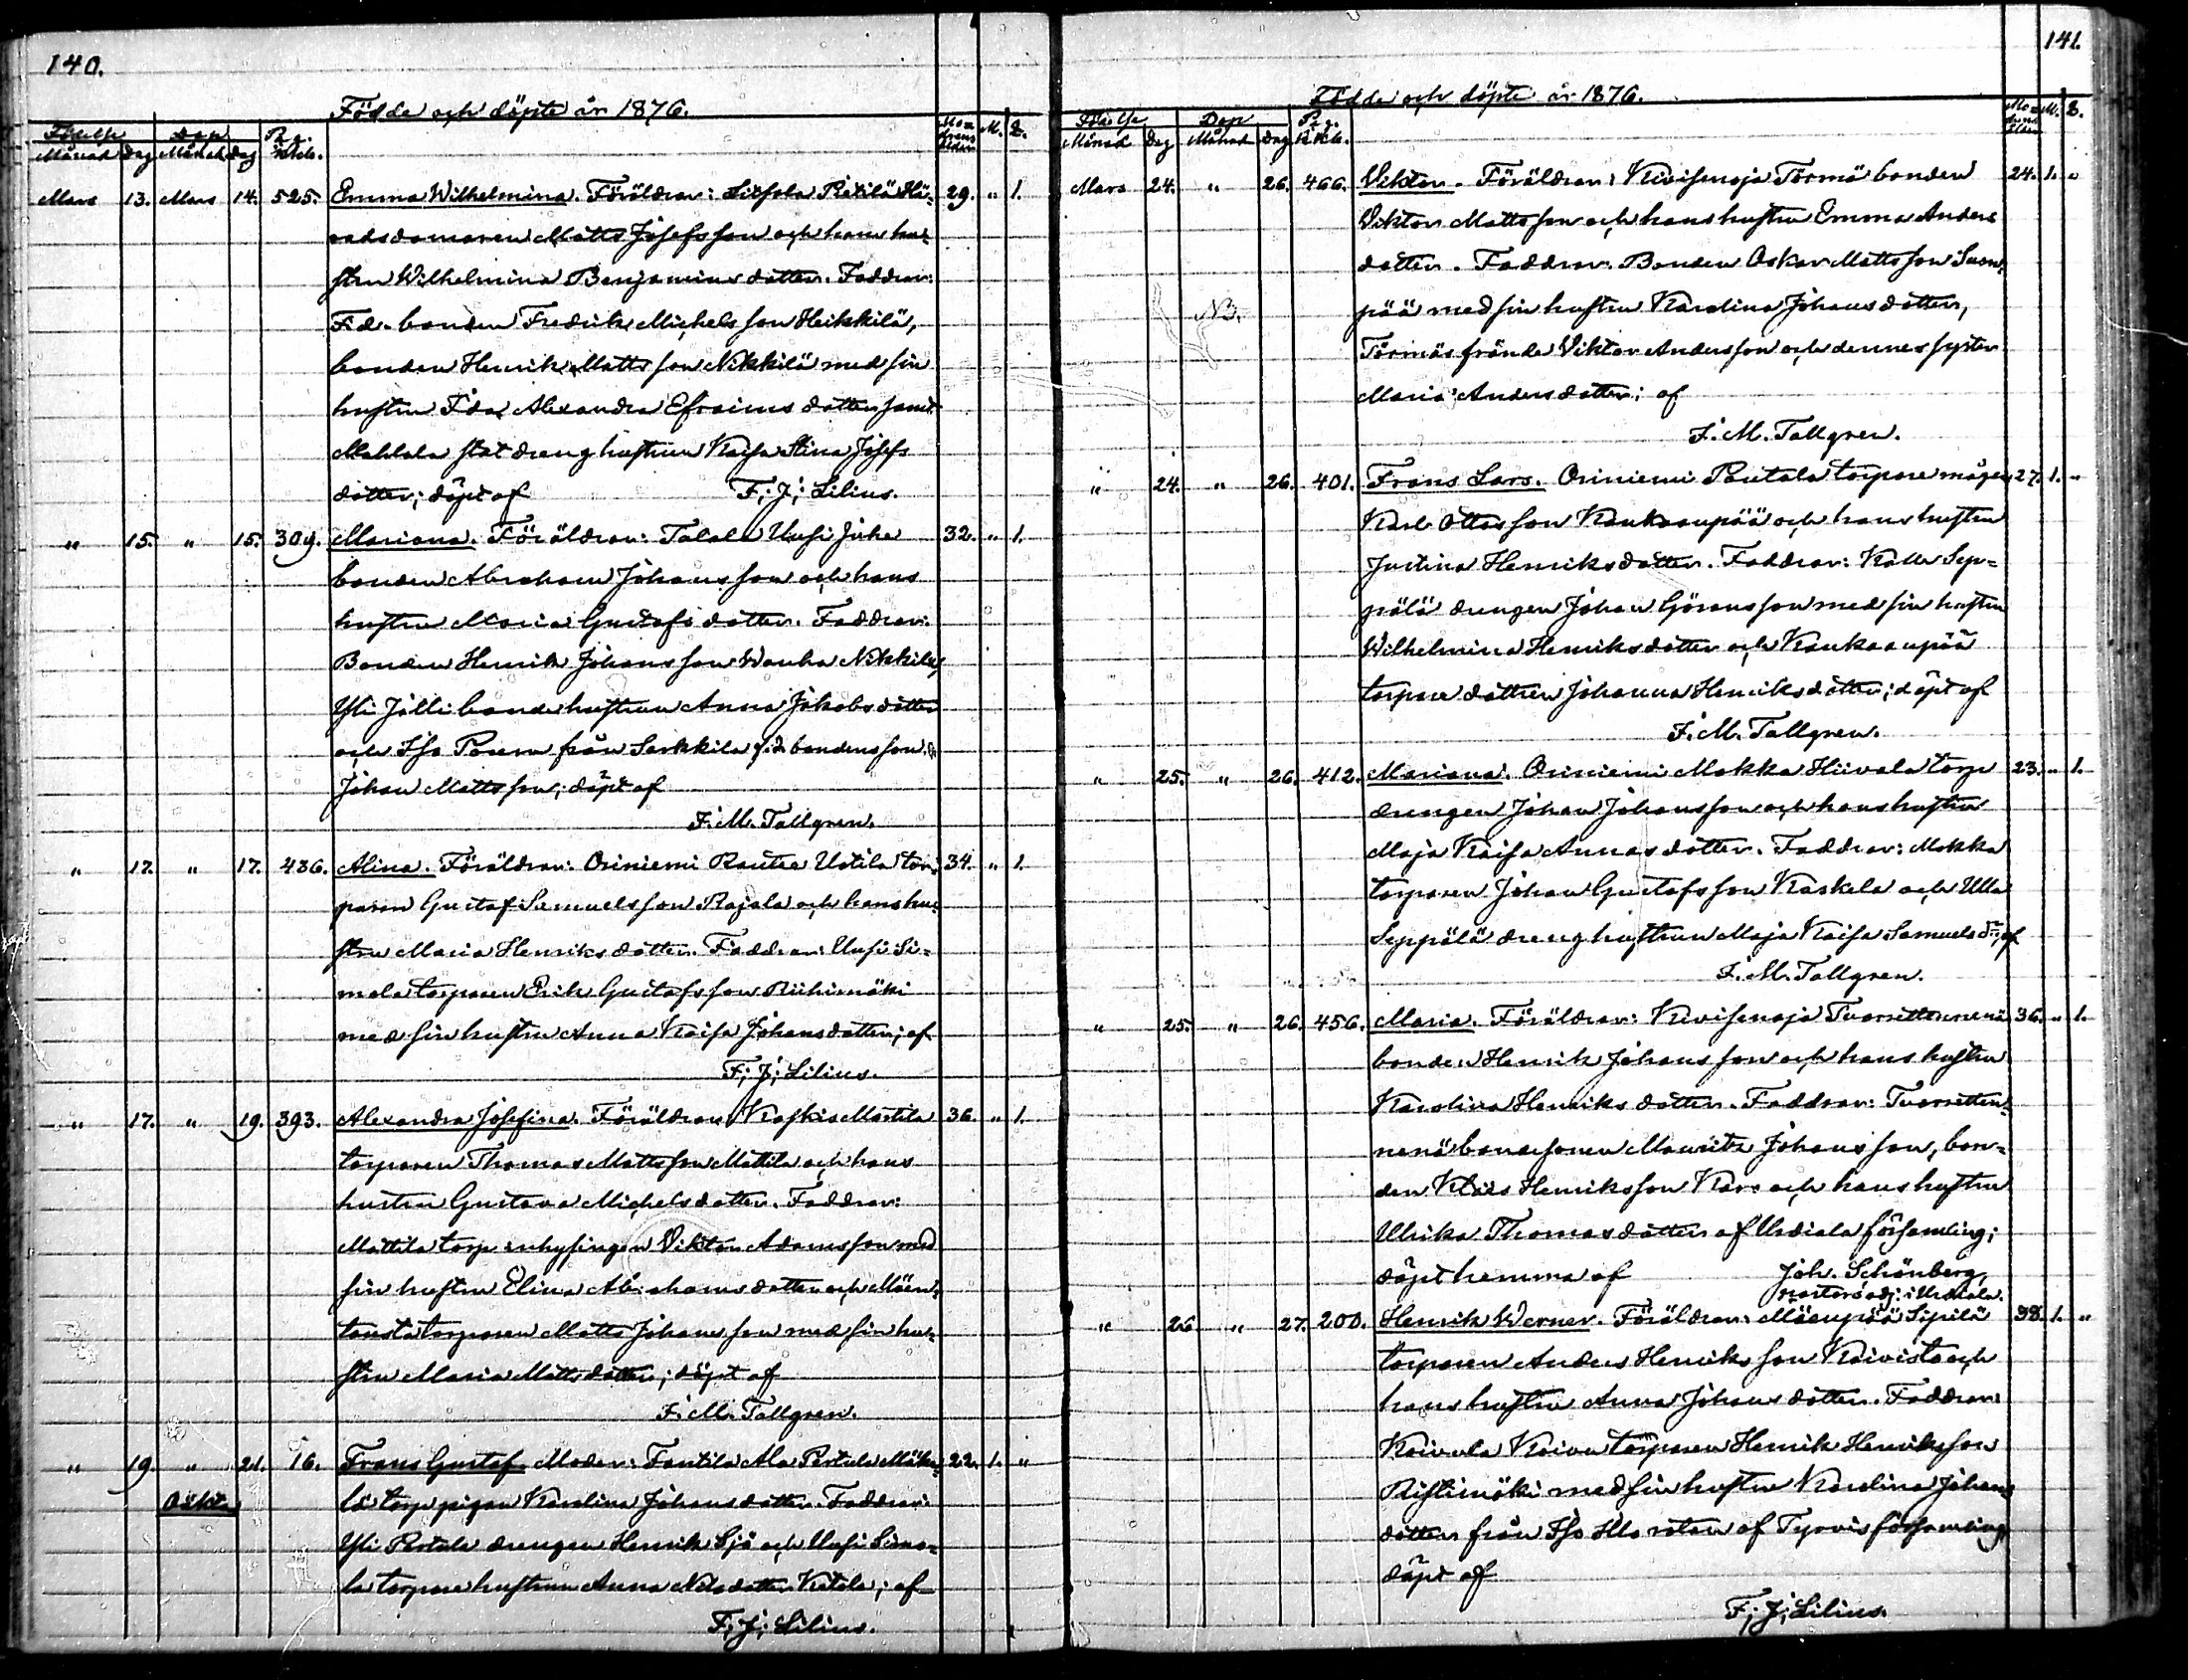 140.
Födde och döpte år 1876.
Födelse Dop Pag. Mo=drens ålder M. Q.
Månad Dag Månad Dag KKb.
Mars 13. Mars 14. 525. Emma Wilhelmina. Föräldrar: Rekilä Hä= 29. " 1.
radsdomaren Matts Josefsson och hans hu=
stru Wilhelmina Benjaminsdotter. Faddrar:
F.d. bonden Fredrik Michelsson Heikkilä,
bonden Henrik Mattsson Nikkilä med sin
hustru Ida Alexandra Efraimsdotter samt
Mahlala statdrenghustrun Kaisa Stina Josefs
dotter; döpt af F; J; Lilius.
" 15. " 15. 309. Mariana. Föräldrar: Talala Uusi Juha 32. " 1.
bonden Abraham Johansson och hans
hustru Maria Gustafsdotter. Faddrar:
Bonden Henrik Johansson Wanha Nikkilä,
Yli Jälli bondehustrun Anna Jakobsdotter
och Iso från Sarkkila f.d. bondens son
Johan Mattsson; döpt af
F. M. Tallgren.
" 17. " 17. 436. Alina. Föräldrar: Oriniemi Rautee Uotila tor= 34. " 1.
paren Gustaf Samuelsson Rajala och hans hu=
stru Maria Henriksdotter. Faddrar: Uusi Si=
mola torparen Erik Gustafsson Riihimäki
med sin hustru Anna Kaisa Johansdotter; af
F; J; Lilius.
" 17. " 19. 393. Alexandra Josefina. Föräldrar: Martila 36. " 1.
torparen Thomas Mattsson Mattila och hans
hustru Gustava Michelsdotter. Faddrar:
Mattila torp inhysingen Viktor Adamsson med
sin hustru Elina Abrahamsdotter och Mäen=
tausta torparen Matts Johansson med sin hu=
stru Maria Mattsdotter; döpt af
F. M. Tallgren.
" 19. " 21. 16. Frans Gustaf. Moder: Fontila Ala Pertula Mäke= 22. 1. "
Oäkta lä torp pigan Karolina Johansdotter. Faddrar:
Yli Pertula drengen Henrik Sjö och Uusi Simo=
la torparehustrun Anna Nilsdotter Ketola; af
F; J; Lilius.
141.
Födde och döpte år 1876.
Födelse Dop Pag. Mo=drens ålder M. Q.
Månad Dag Månad Dag KKb.
Mars 24. " 26. 466. Viktor. Föräldrar: Kivisenoja Törmä bonden 24. 1. "
Viktor Mattsson och hans hustru Emma Anders
dotter. Faddrar: Bonden Oskar Mattsson Suon=
NB. pää med sin hustru Karolina Johansdotter,
Törmäs frände Viktor Andersson och dennes syster
Maria Andersdotter; af
F. M. Tallgren.
" 24. " 26. 401. Frans Lars. Oriniemi Pautala torpare mågen 27. 1. "
Karl Ottosson Kaukaanpää och hans hustru
Justina Henriksdotter. Faddrar: Kalle Sep=
pälä drengen Johan Göransson med sin hustru
Wilhelmina Henriksdotter och Kaukaanpää
torpare dottren Johanna Henriksdotter; döpt af
F. M. Tallgren.
" 25. " 26. 412. Mariana. Oriniemi Mokka Hiivala torp 23. " 1.
drengen Johan Johansson och hans hustru
Maja Kaisa Annasdotter. Faddrar: Mokka
torparen Johan Gustafsson Kaskela och Ulla
Seppälä drenghustrun Maja Kaisa Samuelsdr; af
F. M. Tallgren.
" 25. " 26. 456. Maria. Föräldrar: Kivisenoja 36. " 1.
bonden Henrik Johansson och hans hustru
Karolina Henriksdotter. Faddrar: Tuorretten=
nenä bondesonen Mauritz Johansson, bon=
den Klaës Henriksson Karo och hans hustru
Ulrika Thomasdotter af Urdiala församling;
döpt hemma af Joh. Schönberg,
pastors adj. i Urdiala.
" 26 " 27. 200. Henrik Werner. Föräldrar: Mäenpää Sipilä 38. 1. "
torparen Anders Henriksson Koivisto och
hans hustru Anna Johansdotter. Faddrar:
Koivula Koivu torparen Henrik Henriksson
Ristimäki med sin hustru Karolina Johans
dotter från Iso roten af Tyrvis församling
döpt af
F; J; Lilius.